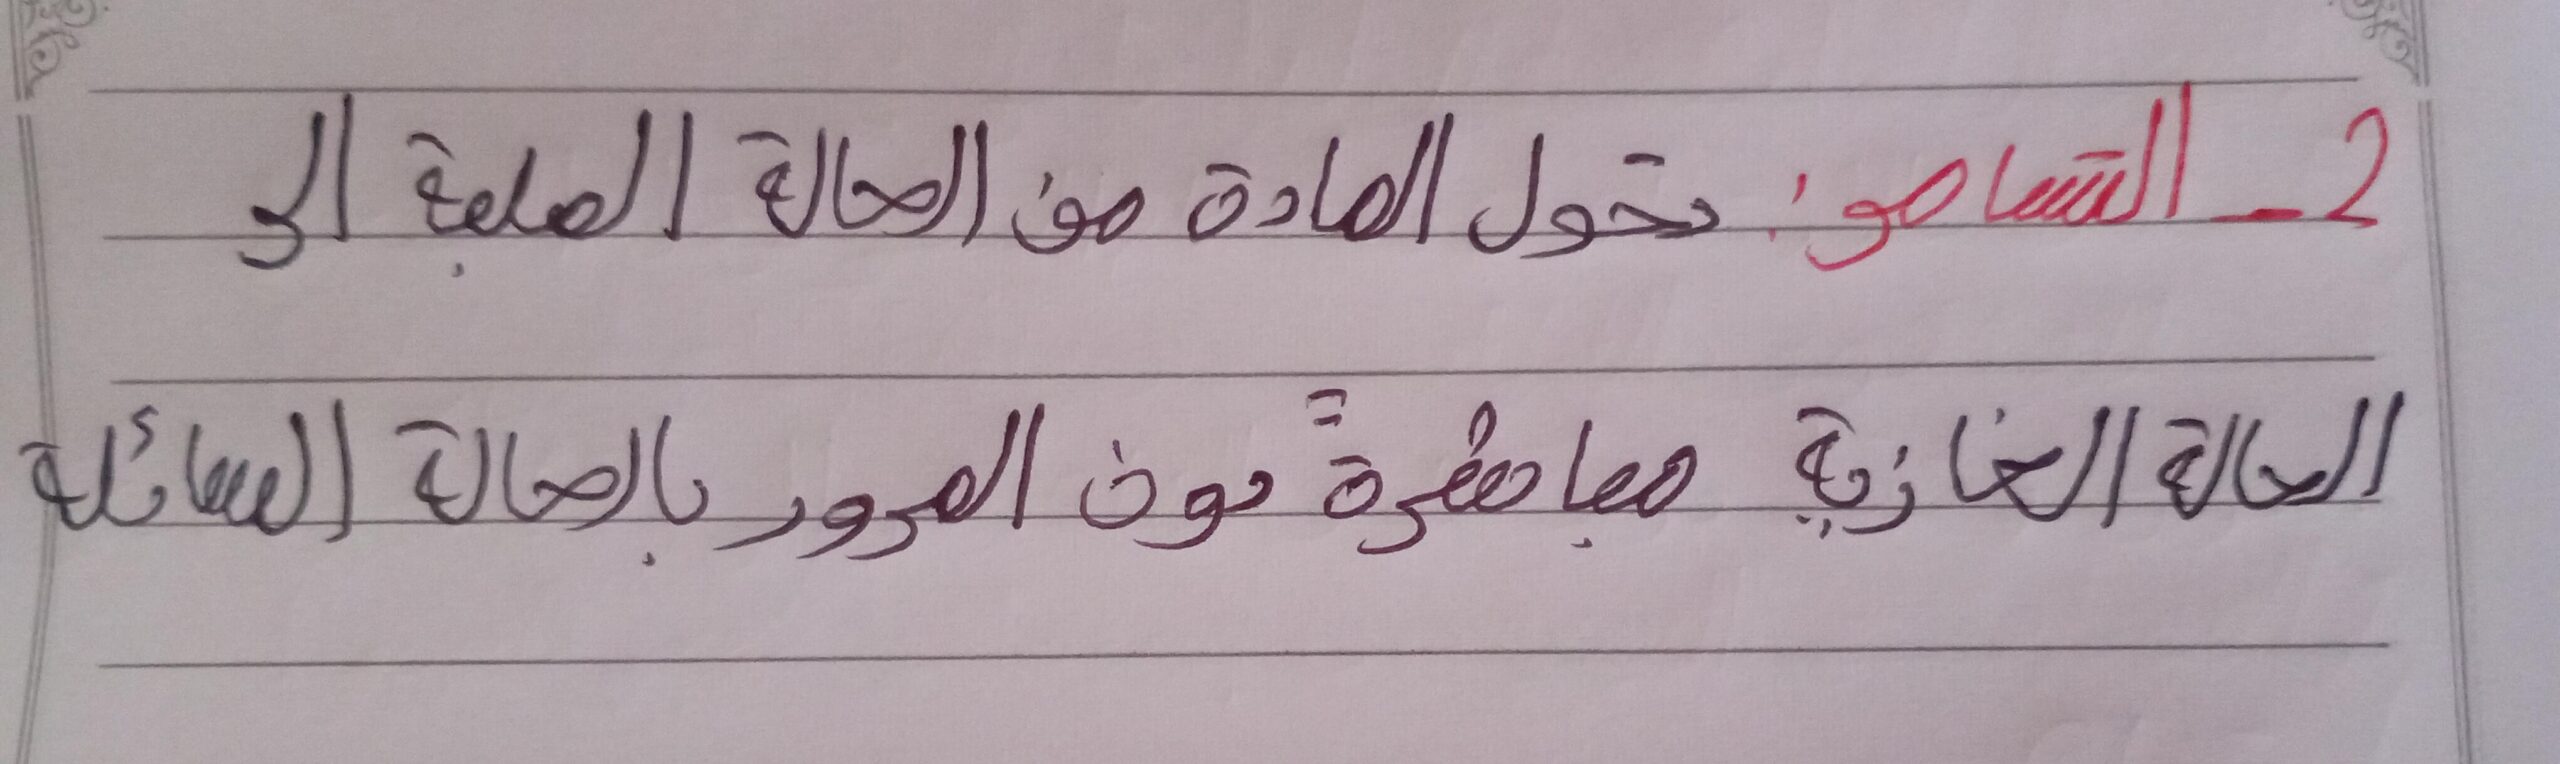 2- التسامي: تحول المادة من الحالة الصلبة الى
الحالة الغازية مباشرةً دون المرور بالحالة السائلة